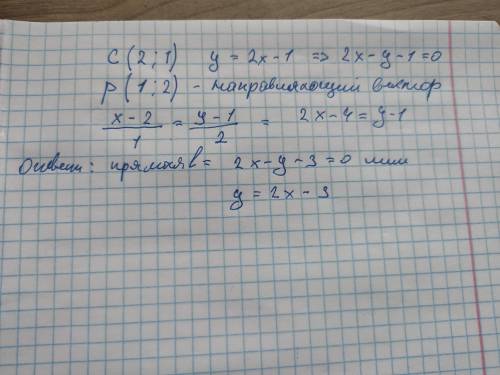 C(2;1) y = 2x-1 => 2x-y-1=0
p(1;2) - направляющий вектор
x-2/1 = y-1/2 = 2x-4=y-1
Ответ: прямая l = 2x-y-3=0 или
y = 2x-3